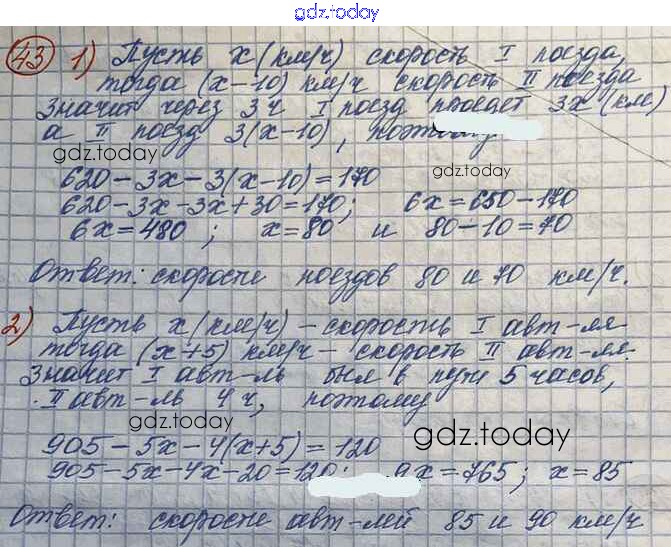 gdz.today
43 1) Пусть x (км/ч) скорость I поезда,
тогда (x-10) км/ч скорость II поезда
значит через 3 ч I поезд проедет 3x (км)
а II поезд 3(x-10), поэтому
gdz.today
gdz.today
620-3x-3(x-10)=170
620-3x-3x+30=170; 6x=650-170
6x=480; x=80 и 80-10=70
Ответ: скорости поездов 80 и 70 км/ч.
2) Пусть x (км/ч) - скорость I авт-ля
тогда (x+5) км/ч - скорость II авт-ля.
Значит I авт-ль был в пути 5 часов,
II авт-ль 4 ч, поэтому
gdz.today
gdz.today
905-5x-4(x+5)=120
905-5x-4x-20=120; 9x=765; x=85
Ответ: скорости авт-лей 85 и 90 км/ч